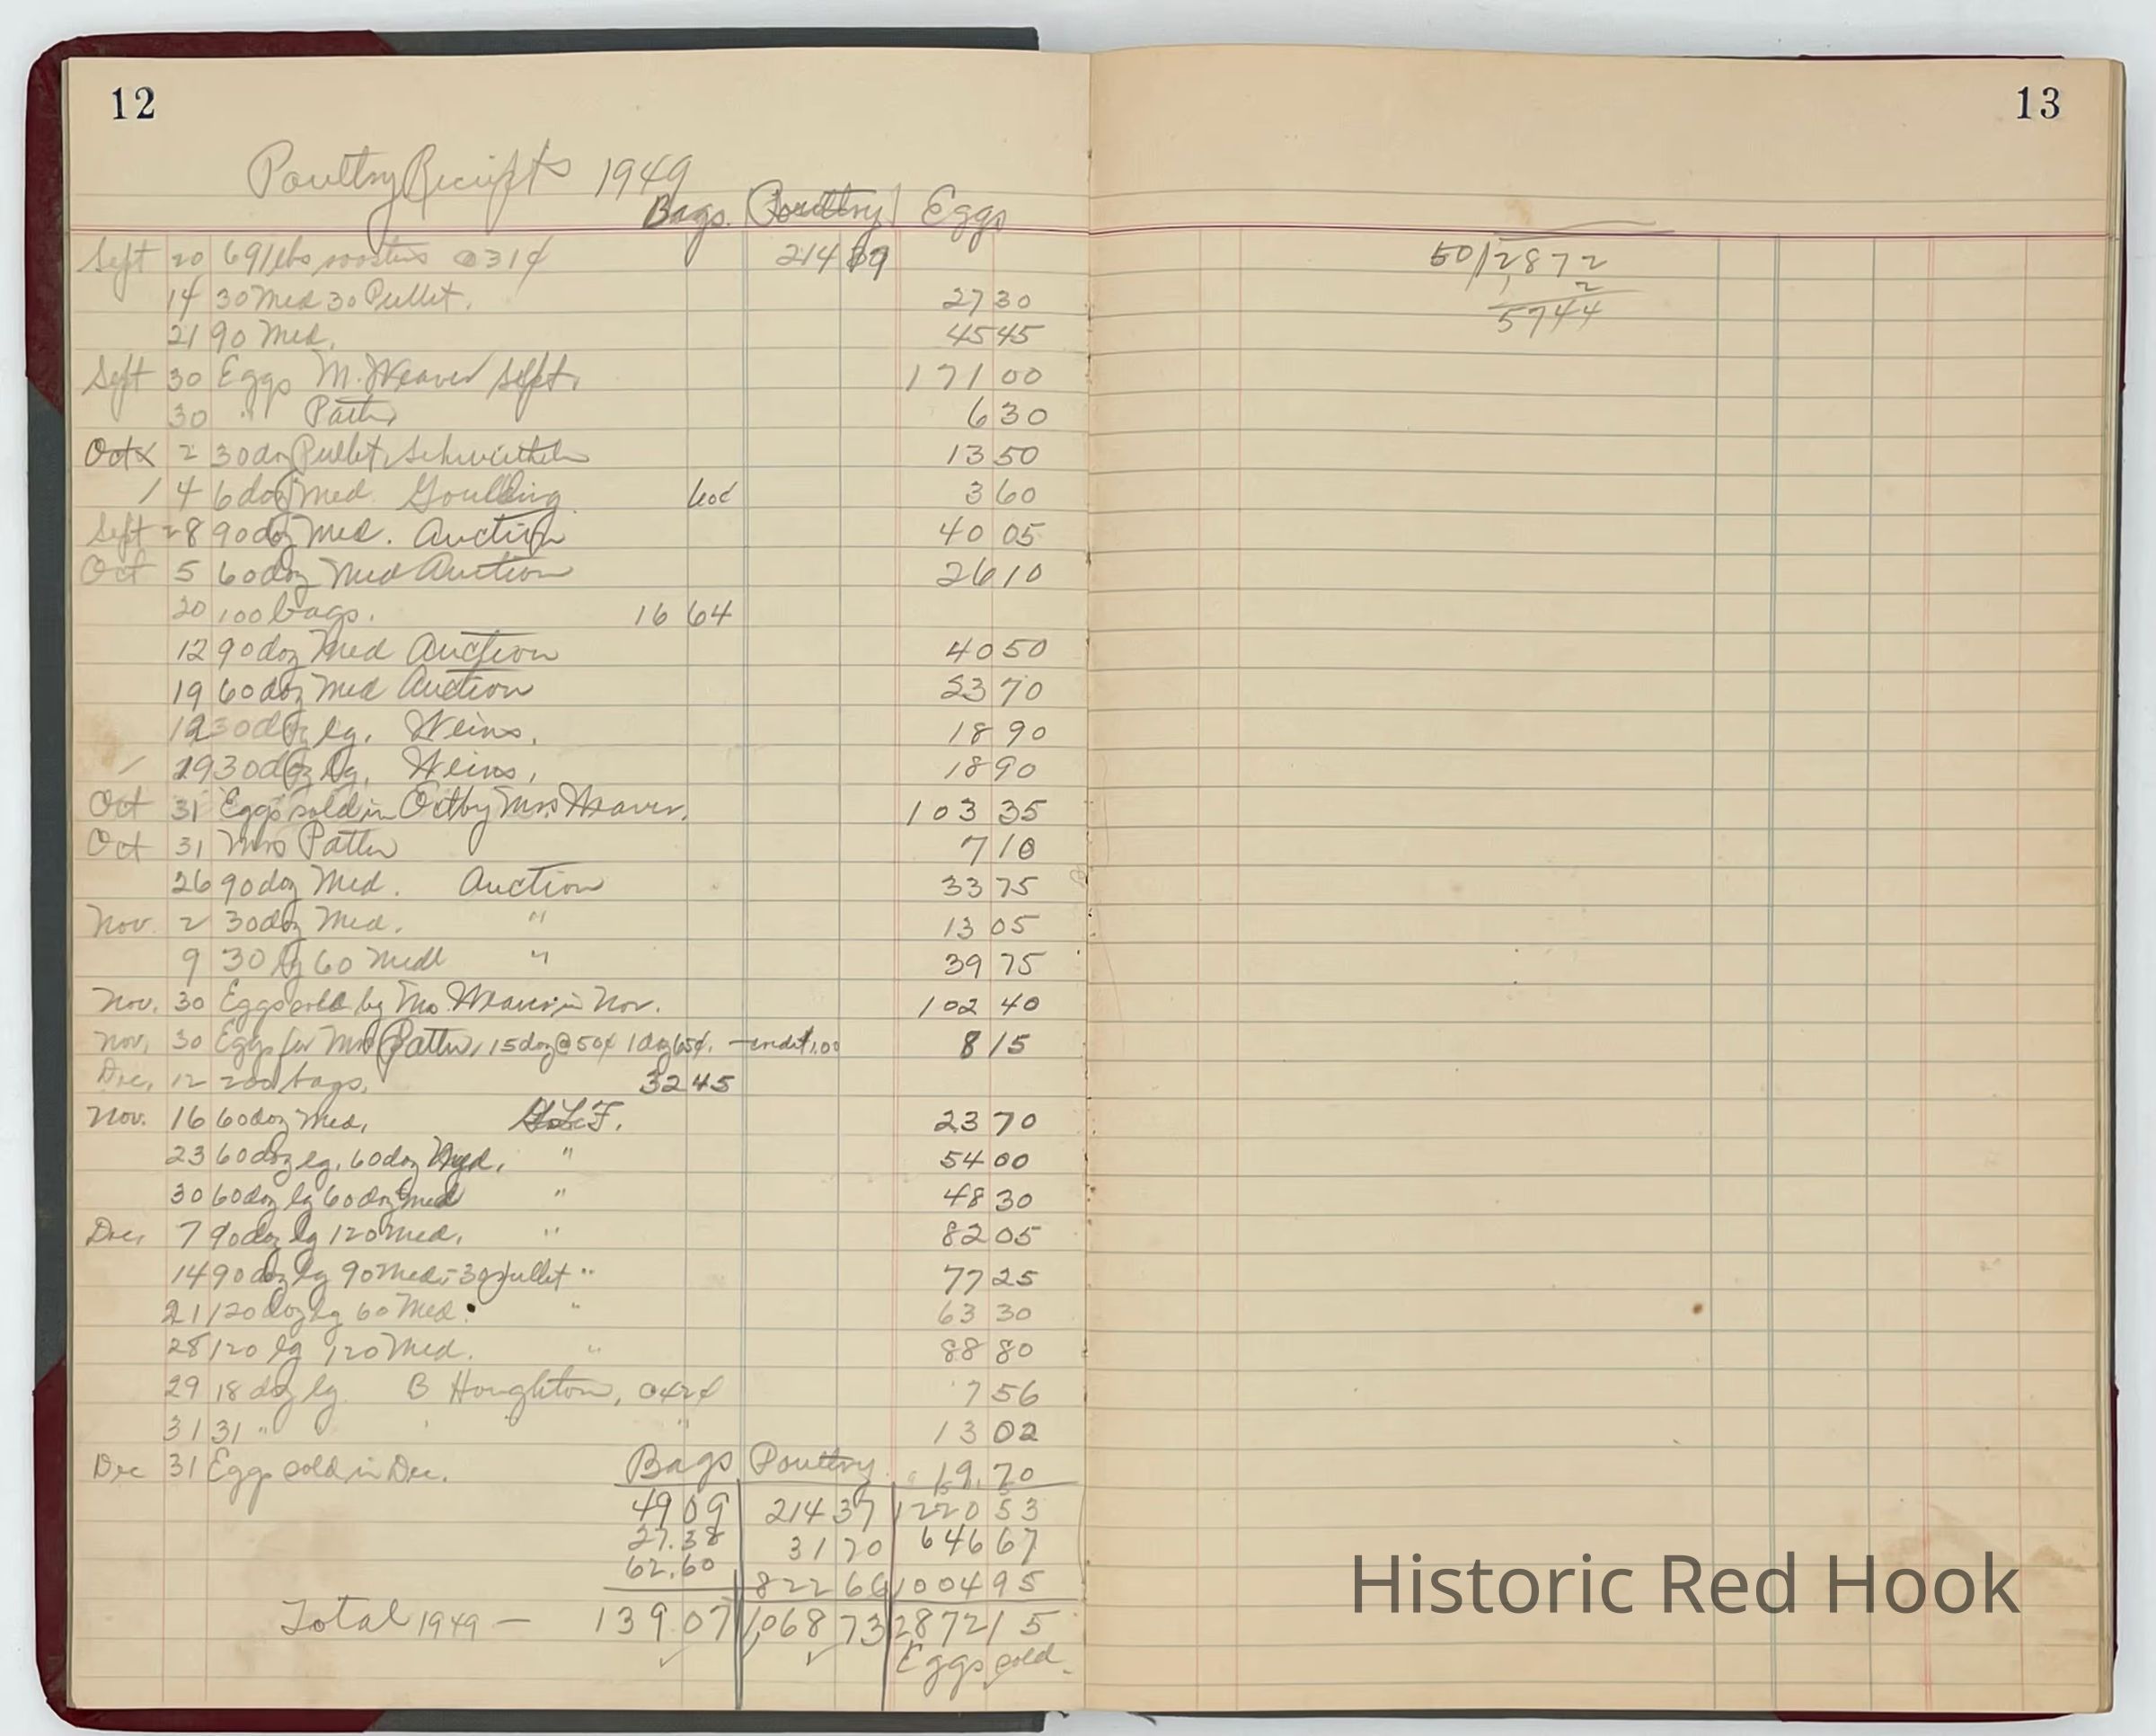 12
Poultry Reciepts 1949
Bags. Poultry Eggs
Sept 20 691 lbs roosters @ 31¢ 214 37
14 30 Med 30 Pullet. 27 30
21 90 Med. 45 45
Sept 30 Eggs M. Weaver Sept. 171 00
30 " 6 30
Oct 2 30 doz Pullet 13 50
4 6 doz Med. Goulding 60¢ 3 60
Sept 28 90 doz Med. Auction 40 05
Oct 5 60 doz Med Auction 26 10
20 100 bags. 16 64
12 90 doz Med Auction 40 50
19 60 doz Med Auction 23 70
12 30 doz lg. Weins. 18 90
19 30 doz lg. Weins, 18 90
Oct 31 Eggs sold in Oct by Mrs. Weaver. 103 35
Oct 31 Mrs Patten 7 10
26 90 doz Med. Auction 33 75
Nov. 2 30 doz Med. " 13 05
9 30 lg 60 Med " 39 75
Nov. 30 Eggs sold by Mrs. Weaver in Nov. 102 40
Nov. 30 Eggs for Mrs Patten, 15 doz @ 50¢ 1 doz 65¢. - credit 1.00 8 15
Dec. 12 200 bags. 32 45
Nov. 16 60 doz Med. G.L.F. 23 70
23 60 doz lg. 60 doz Med. " 54 00
30 60 doz lg 60 doz Med " 48 30
Dec. 7 90 doz lg 120 Med. " 82 05
14 90 doz lg 90 Med. - 30 pullet " 77 25
21 120 doz lg 60 Med. " 63 30
28 120 lg 120 Med. " 88 80
29 18 doz lg B Houghton, @42¢ 7 56
31 31 " " 13 02
Dec 31 Eggs sold in Dec. Bags Poultry 19.70
49 09 214 37 1220 53
27.38 31 70 646 67
62.60 822 66 1004 95
Total 1949 — 139 07 1,068 73 2872 15
Eggs sold.
13
50/2872
2
5744
Historic Red Hook